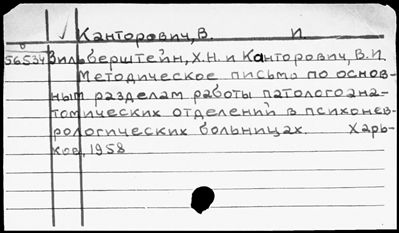 Канторович, В. И.
56534 Зильберштейн, Х.Н. и Канторович, В.И.
Методическое письмо по основ-
ным разделам работы патологоана-
томических отделений в психонев-
рологических больницах. Харь-
ков, 1958